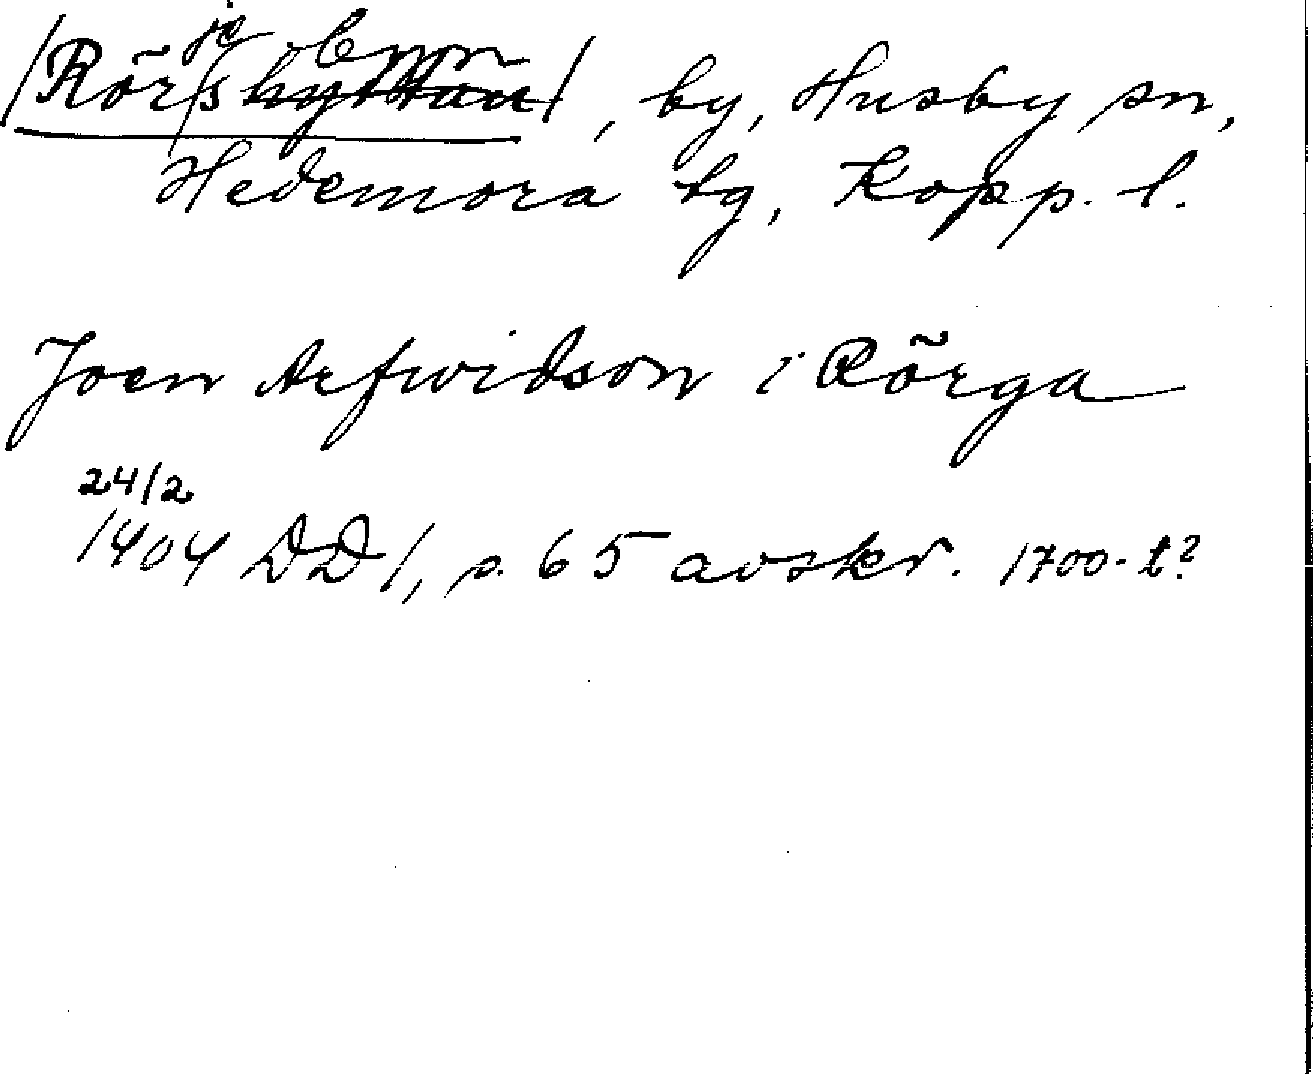 je
/Rörshyttan/, by, Husby sn,
Hedemora tg, Kopp. l.
Joen Arfwidson i Rörga
24/2
1404 DD 1, s. 65 avskr. 1700-t?